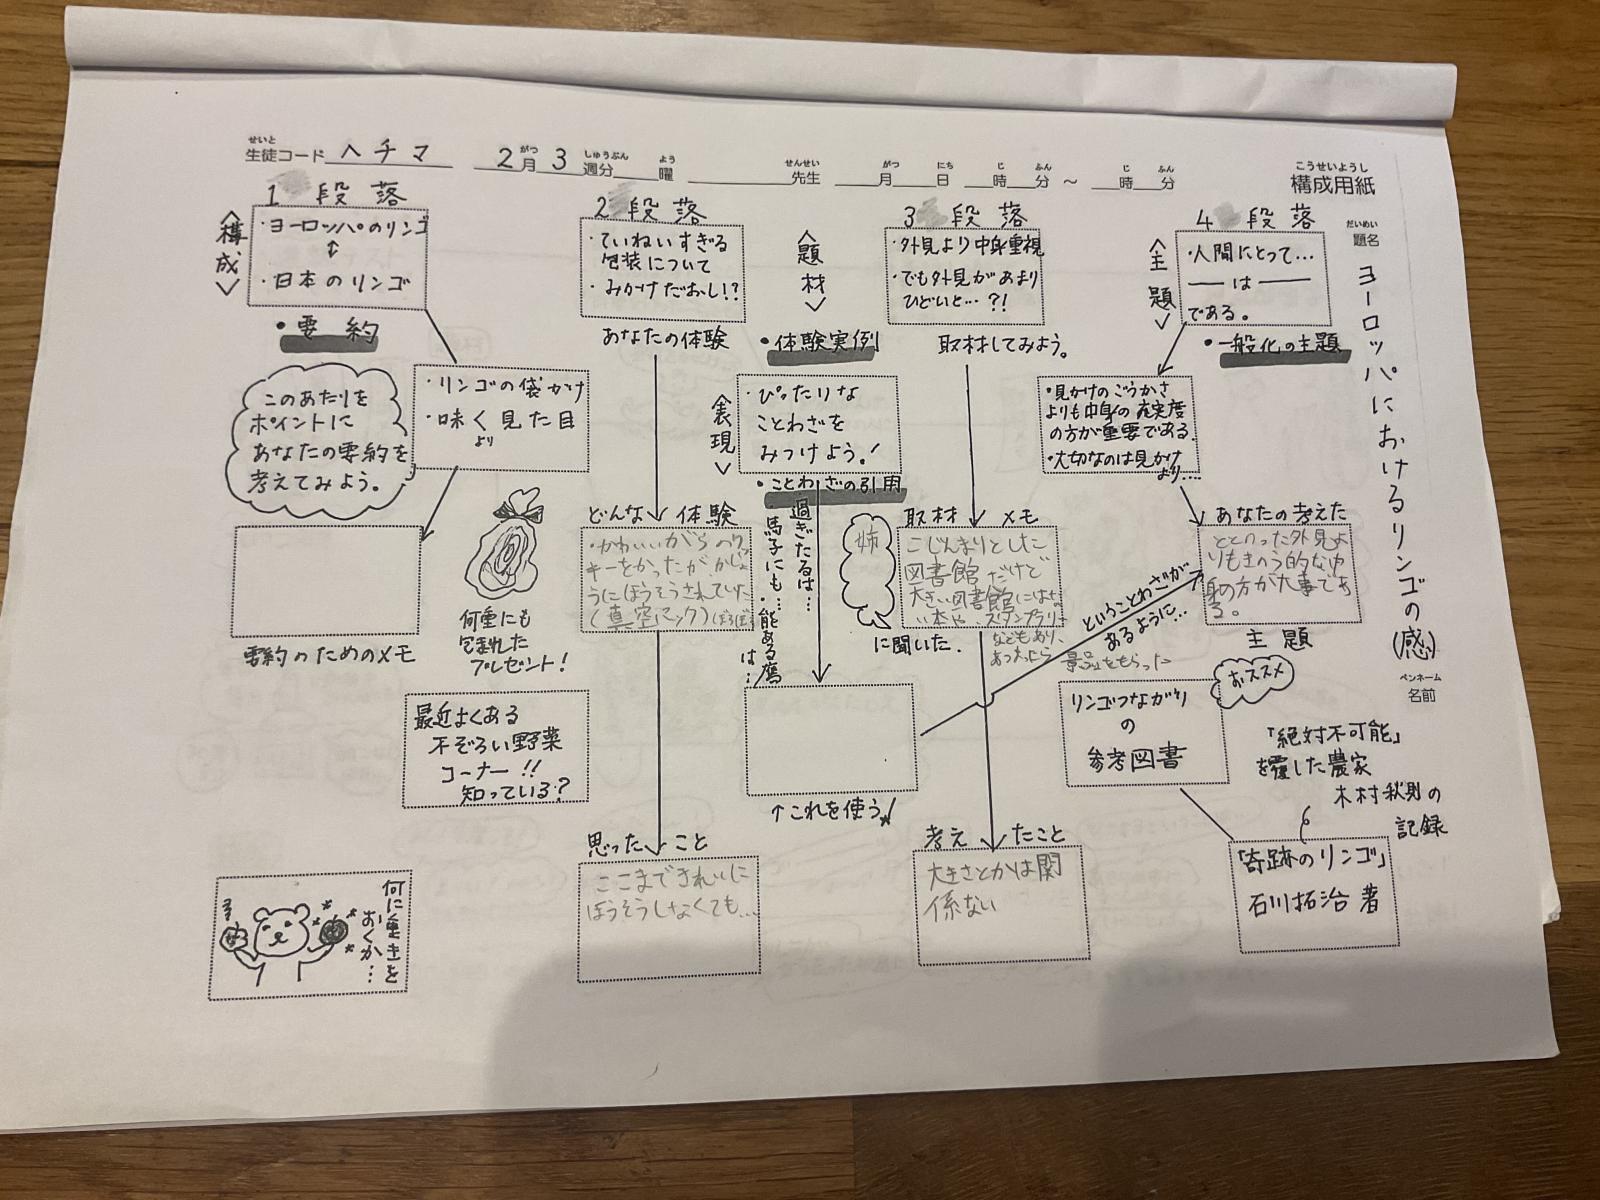 生徒コード ヘチマ 2月3週分 曜 先生 月 日 時 分 ～ 時 分
せいと がつ しゅうぶん よう せんせい がつ にち じ ふん じ ふん
こうせいようし
構成用紙
だいめい
題名
ヨーロッパにおけるリンゴの(感)
ペンネーム
名前
1 段落
〈構成〉
・ヨーロッパのリンゴ
↕
・日本のリンゴ
・要約
このあたりを
ポイントに
あなたの要約を
考えてみよう。
・リンゴの袋がけ
・味く見た目
より
要約のためのメモ
何重にも
包まれた
プレゼント!
最近よくある
不ぞろい野菜
コーナー!!
知っている?
何に重きを
おくか…
2 段落
・ていねいすぎる
包装について
・みかけだおし!?
あなたの体験
〈題材〉
・体験実例
どんな体験
・かわいいがらのクッ
キーをかったが、かじょ
うにほうそうされていた
(真空パック)
思ったこと
ここまできれいに
ほうそうしなくても…
〈表現〉
・ぴったりな
ことわざを
みつけよう!
・ことわざの引用
過ぎたるは…
馬子にも…
能ある鷹は…
↑これを使う
3 段落
・外見より中身重視
・でも外見があまり
ひどいと…?!
取材してみよう。
取材メモ
姉
に聞いた.
こじんまりとした
図書館だけど
大きい図書館にはな
い本や、スタンプラリー
などもあり、
あつめたら
景品をもらった
考えたこと
大きさとかは関
係ない
4 段落
〈主題〉
・人間にとって…
── は ──
である。
・一般化の主題
・見かけのごうかさ
よりも中身の充実度
の方が重要である.
・大切なのは見かけ
より….
あなたの考えた
ととのった外見よ
りもきのう的な中
身の方が大事であ
る。
主題
ということわざが
あるように…
おススメ
リンゴつながり
の
参考図書
「絶対不可能」
を覆した農家
木村秋則の
記録
「奇跡のリンゴ」
石川拓治 著